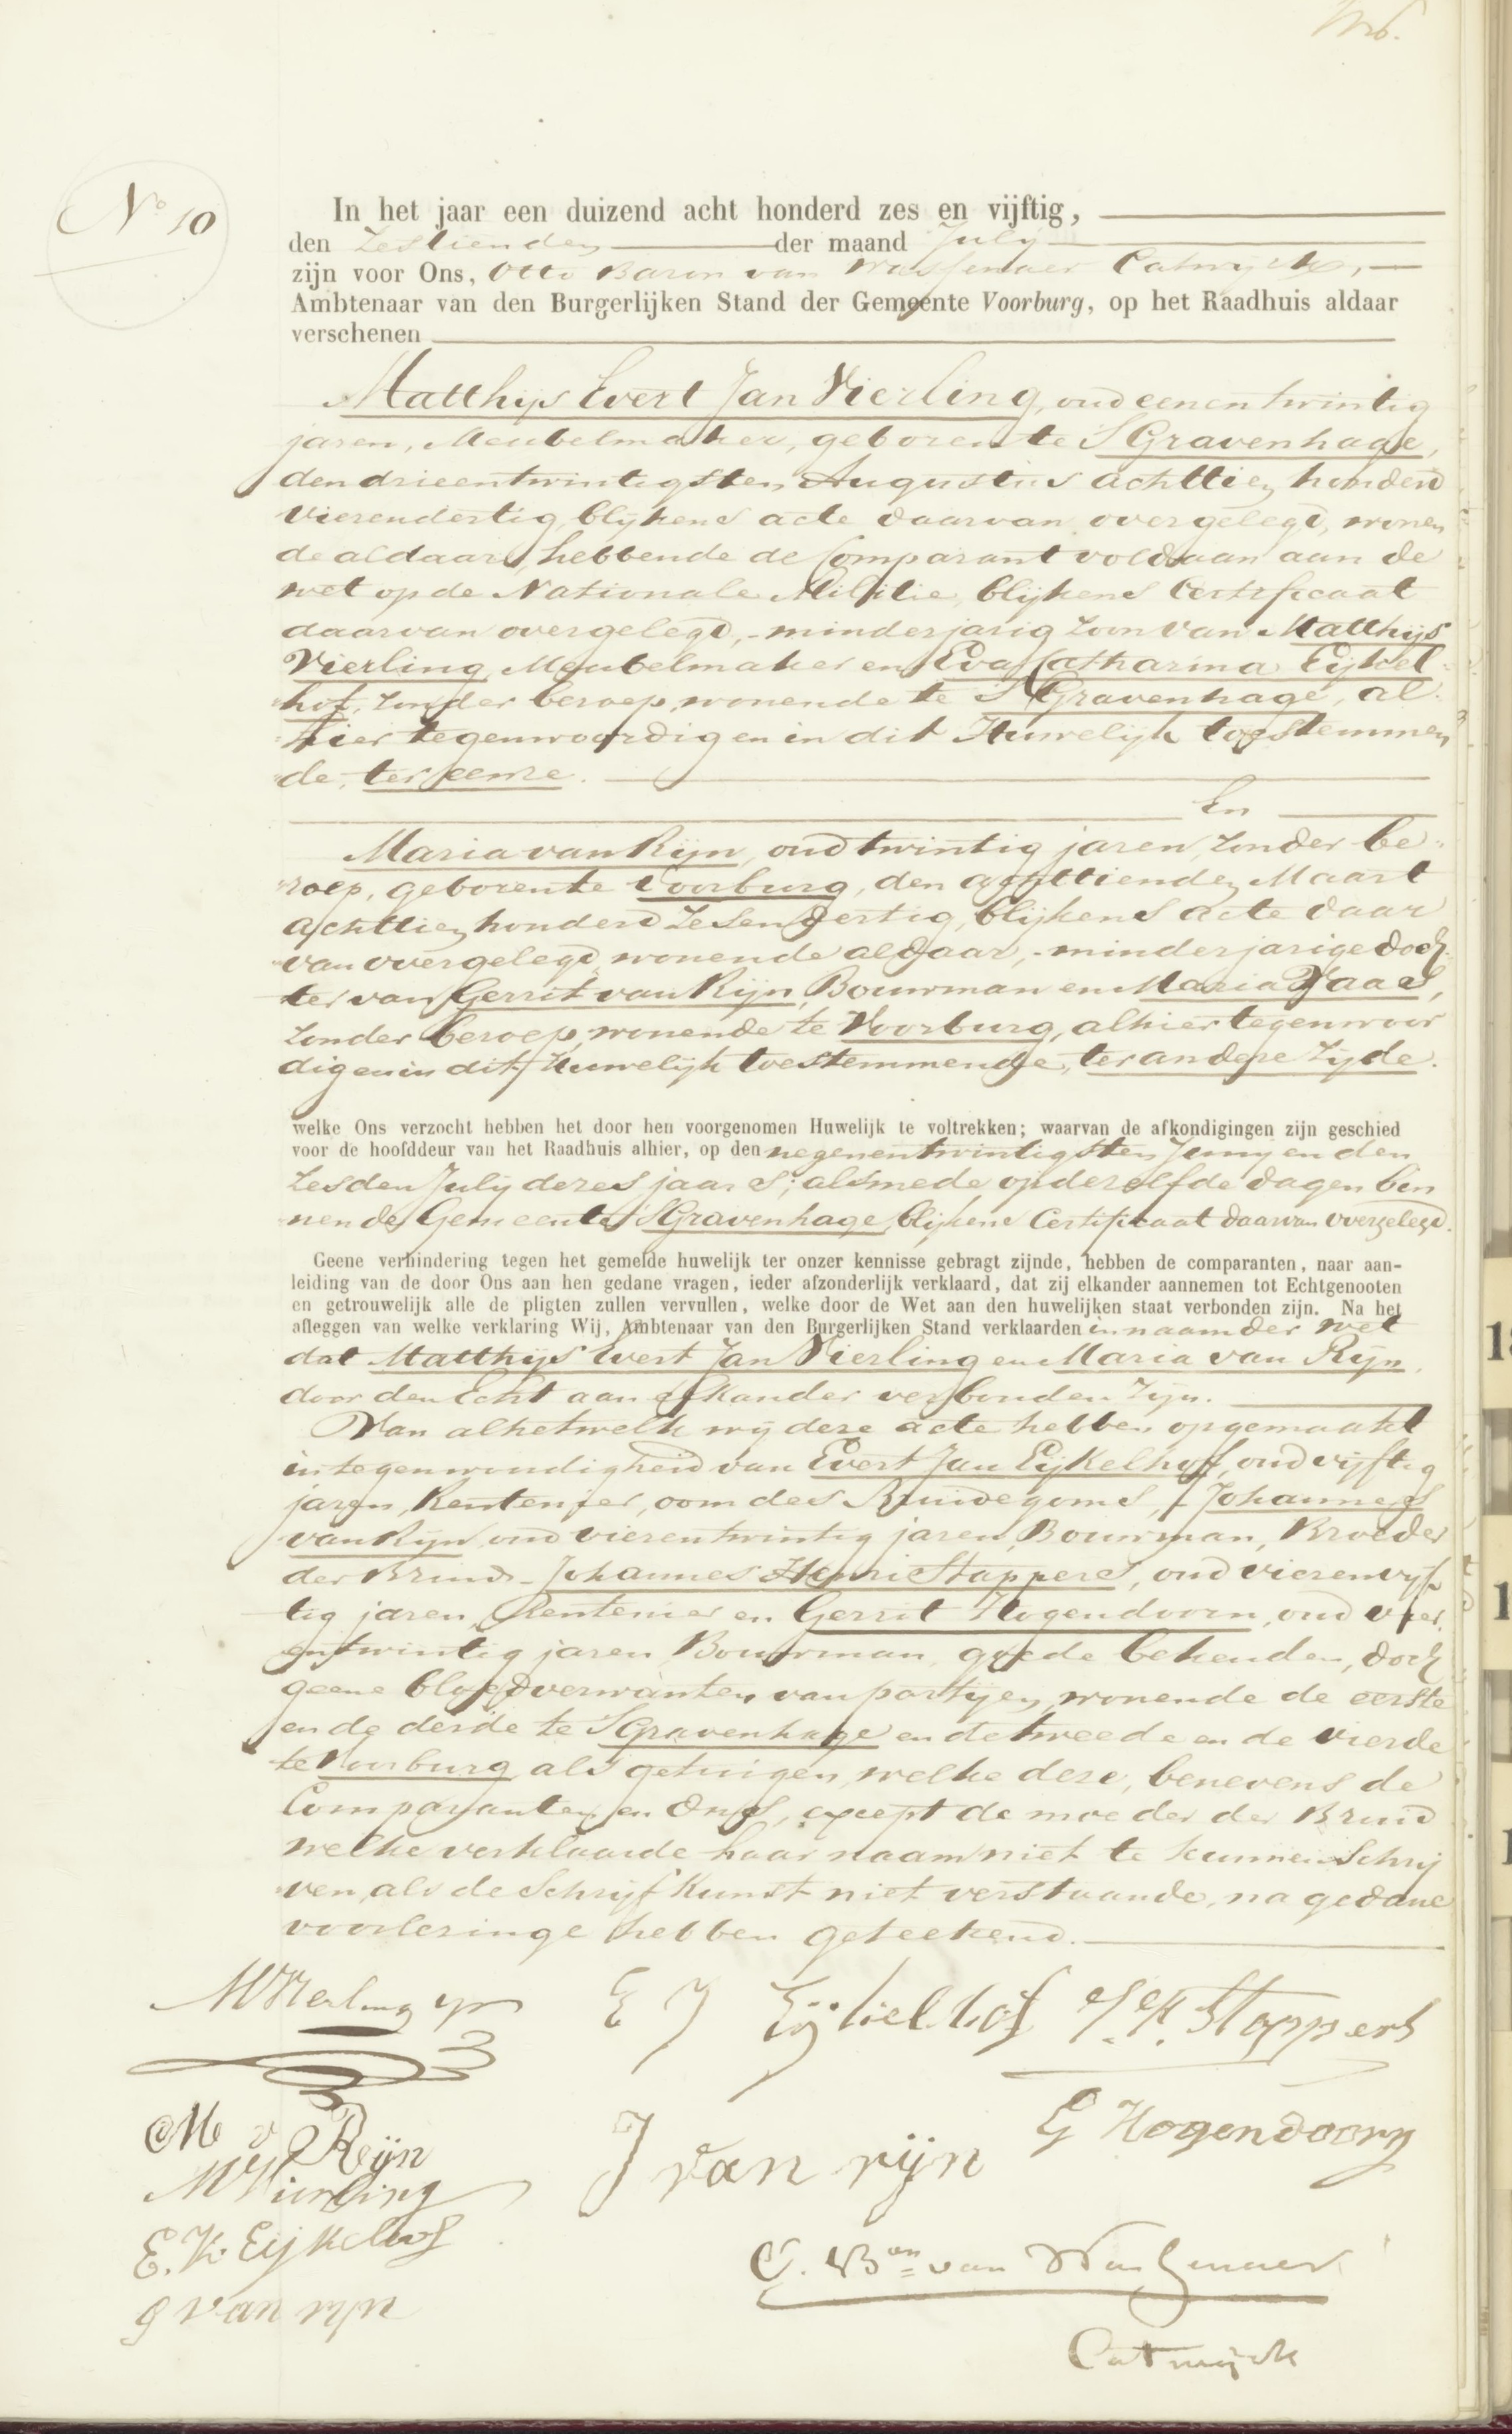 No 10
In het jaar een duizend acht honderd zes en vijftig,
den Zestienden der maand July
zijn voor Ons, Otto Baron van Wassenaer Catwyck,
Ambtenaar van den Burgerlijken Stand der Gemeente Voorburg, op het Raadhuis aldaar
verschenen
Matthijs Evert Jan Vierling, oud eenentwintig
jaren, Meubelmaker, geboren te S'Gravenhage,
den drieentwintigsten Augustus achttien honderd
vierendertig, blijkens acte daarvan overgelegd, wonen
de aldaar, hebbende de Comparant voldaan aan de
wet op de Nationale Militie, blijkens Certificaat
daarvan overgelegd, - minderjarig zoon van Matthijs
Vierling, Meubelmaker en Eva Catharina Eijkel-
hof, zonder beroep, wonende te S'Gravenhage, al-
hier tegenwoordig en in dit Huwelijk toestemmen
de, ter eenre.
En
Maria van Rijn, oud twintig jaren, zonder be-
roep, geboren te Voorburg, den achttienden Maart
achttien honderd zesendertig, blijkens acte daar
van overgelegd, wonende aldaar, - minderjarige doch-
ter van Gerrit van Rijn, Bouwman en Maria
zonder beroep, wonende te Voorburg, alhier tegenwoor
dig en in dit Huwelijk toestemmende, ter andere zijde.
welke Ons verzocht hebben het door hen voorgenomen Huwelijk te voltrekken; waarvan de afkondigingen zijn geschied
voor de hoofddeur van het Raadhuis alhier, op den negenentwintigsten Juny en den
zesden July dezes jaars; alsmede op dezelfde dagen bin
nen de Gemeente S'Gravenhage, blijkens Certificaat daarvan overgelegd.
Geene verhindering tegen het gemelde huwelijk ter onzer kennisse gebragt zijnde, hebben de comparanten, naar aan-
leiding van de door Ons aan hen gedane vragen, ieder afzonderlijk verklaard, dat zij elkander aannemen tot Echtgenooten
en getrouwelijk alle de pligten zullen vervullen, welke door de Wet aan den huwelijken staat verbonden zijn. Na het
afleggen van welke verklaring Wij, Ambtenaar van den Burgerlijken Stand verklaarden in naam der wet
dat Matthijs Evert Jan Vierling en Maria van Rijn,
door den Echt aan elkander verbonden zijn.
Van al hetwelk wij deze acte hebben opgemaakt
in tegenwoordigheid van Evert Jan Eijkelhoff, oud vijftig
jaren, Rentenier, oom des Bruidegoms, - Johannes
van Rijn oud vierentwintig jaren, Bouwman, Broeder
der Bruid - Johannes Henri Stappers, oud vierenvijf
tig jaren, Rentenier en Gerrit Hogendoorn, oud vier
entwintig jaren, Bouwman, goede bekenden, doch
geene bloedverwanten van partyen, wonende de eerste
en de derde te S'Gravenhage en de tweede en de vierde
te Voorburg als getuigen, welke deze, benevens de
Comparanten en Ons, except de moeder der Bruid
welke verklaarde haar naam niet te kunnen schrij
ven, als de Schrijfkunst niet verstaande, na gedane
voorlezinge hebben geteekend.
MVierling jr
E J Eijkelhof
J. H. Stappers
M v Reijn
J van rijn
G Hogendoorn
M Vierling
E. K. Eijkelhof
O. Bon van Wassenaer
g van rijn
Catwijck